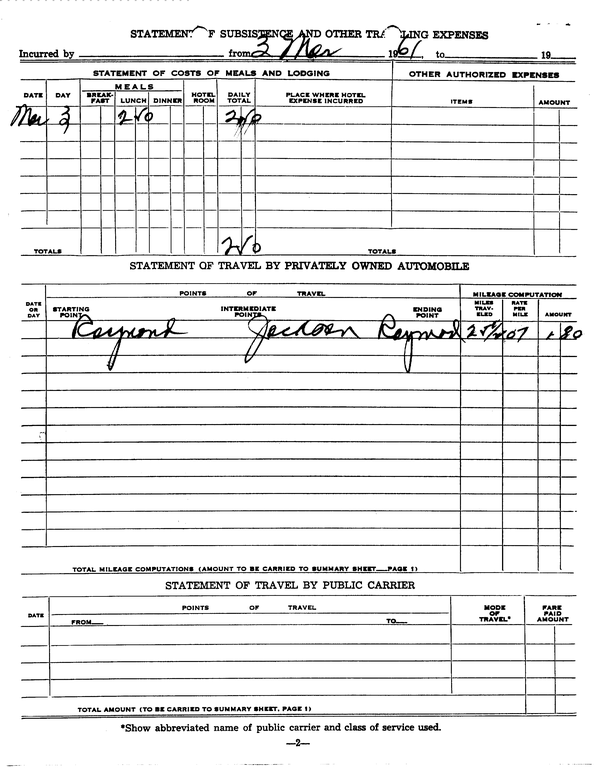 STATEMENT OF SUBSISTENCE AND OTHER TRAVELING EXPENSES
Incurred by from 3 Mar 1961, to 19
STATEMENT OF COSTS OF MEALS AND LODGING OTHER AUTHORIZED EXPENSES
DATE DAY MEALS BREAK-FAST LUNCH DINNER HOTEL ROOM DAILY TOTAL PLACE WHERE HOTEL EXPENSE INCURRED ITEMS AMOUNT
Mar 3
TOTALS TOTALS
STATEMENT OF TRAVEL BY PRIVATELY OWNED AUTOMOBILE
POINTS OF TRAVEL MILEAGE COMPUTATION
DATE OR DAY STARTING POINT INTERMEDIATE POINTS ENDING POINT MILES TRAV-ELED RATE PER MILE AMOUNT
Raymond Jackson Raymond 07 1 80
TOTAL MILEAGE COMPUTATIONS (AMOUNT TO BE CARRIED TO SUMMARY SHEET—PAGE 1)
STATEMENT OF TRAVEL BY PUBLIC CARRIER
DATE POINTS OF TRAVEL MODE OF TRAVEL* FARE PAID AMOUNT
FROM— TO—
TOTAL AMOUNT (TO BE CARRIED TO SUMMARY SHEET, PAGE 1)
*Show abbreviated name of public carrier and class of service used.
—2—